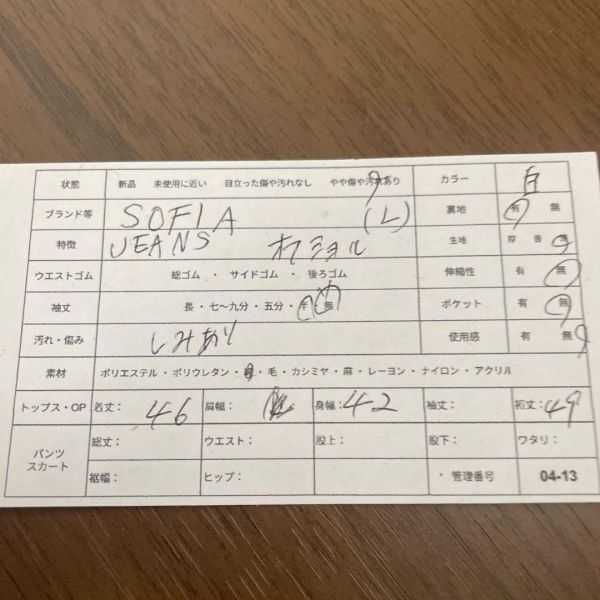 状態 新品 未使用に近い 目立った傷や汚れなし やや傷や汚れあり カラー 白
ブランド等 SOFIA (L) 裏地 有 無
特徴 JEANS オフショル 生地 厚 普 薄
ウエストゴム 総ゴム ・ サイドゴム ・ 後ろゴム 伸縮性 有 無
袖丈 長・七～九分・五分・半・無 ポケット 有 無
汚れ・傷み しみあり 使用感 有 無
素材 ポリエステル・ポリウレタン・綿・毛・カシミヤ・麻・レーヨン・ナイロン・アクリル
トップス・OP 着丈： 46 肩幅： 身幅： 42 袖丈： 裄丈： 49
パンツ スカート 総丈： ウエスト： 股上： 股下： ワタリ：
裾幅： ヒップ： 管理番号 04-13